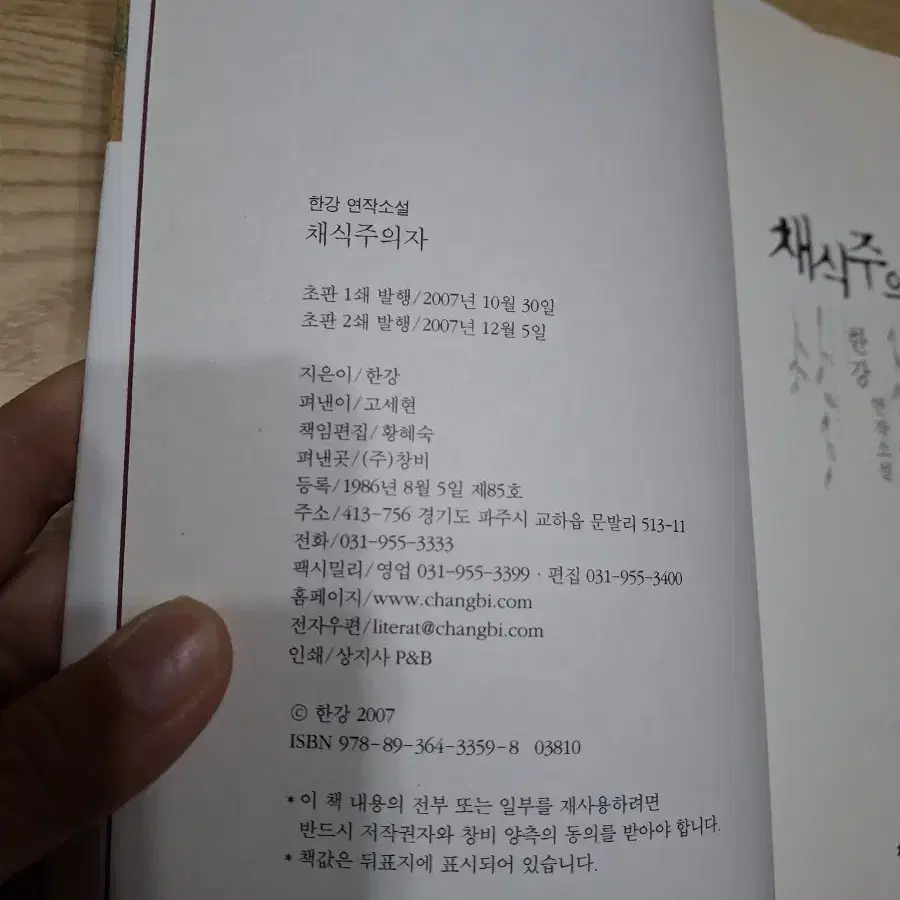 한강 연작소설
채식주의자
초판 1쇄 발행/2007년 10월 30일
초판 2쇄 발행/2007년 12월 5일
지은이/한강
펴낸이/고세현
책임편집/황혜숙
펴낸곳/(주)창비
등록/1986년 8월 5일 제85호
주소/413-756 경기도 파주시 교하읍 문발리 513-11
전화/031-955-3333
팩시밀리/영업 031-955-3399 · 편집 031-955-3400
홈페이지/www.changbi.com
전자우편/literat@changbi.com
인쇄/상지사 P&B
ⓒ 한강 2007
ISBN 978-89-364-3359-8 03810
* 이 책 내용의 전부 또는 일부를 재사용하려면
반드시 저작권자와 창비 양측의 동의를 받아야 합니다.
* 책값은 뒤표지에 표시되어 있습니다.
채식주의
한강
연작소설